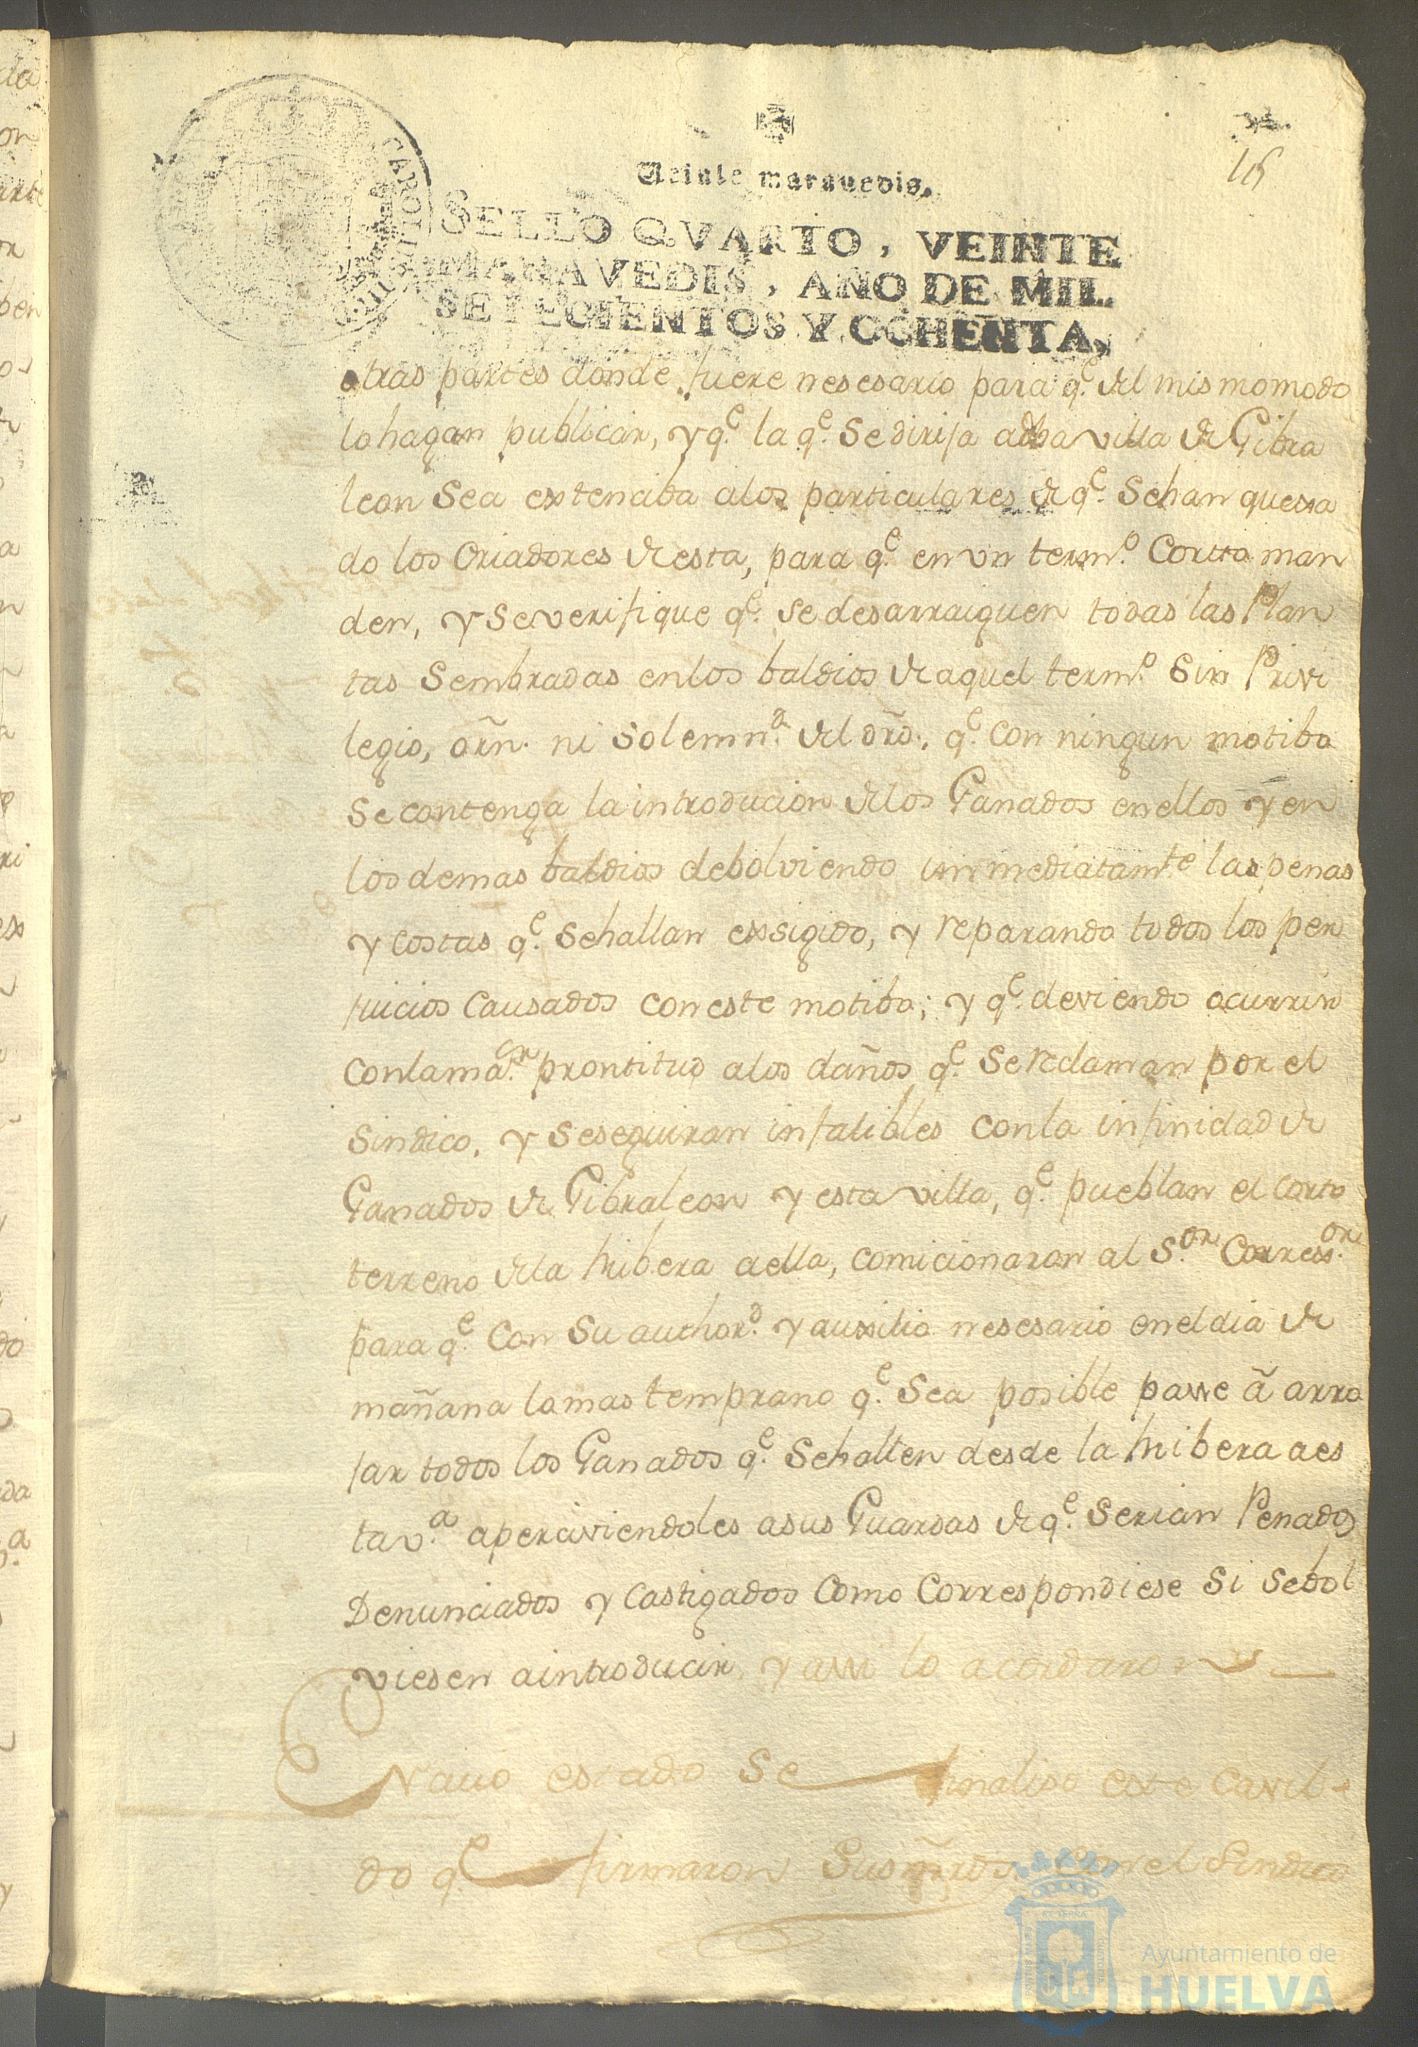 16
Veinte maravedis.
SELLO QVARTO, VEINTE
MARAVEDIS, AÑO DE MIL
SETECIENTOS Y OCHENTA,
otras partes donde fuere nesesario para q.e del mismo modo
lo hagan publicar, y q.e la q.e Se dirija a dha villa de Gibra
leon Sea extenciba a los particulares de q.e Se han quexa
do los Criadores de esta, para q.e en un term.o Corto man
den, y Se verifique q.e Se desarraiguen todas las Plan
tas Sembradas en los baldios de aquel term.o Sin Privi
legio, orñ. ni Solemn.d del drõ., q.e Con ningun motibo
Se contenga la introducion de los Ganados en ellos y en
los demas baldios debolviendo inmediatam.te las penas
y costas q.e Se hallan exsigido, y reparando todos los per
juicios Causados con este motibo; y q.e deviendo ocurrir
Con la ma.or prontitud a los daños q.e Se reclaman por el
Sindico, y Se seguiran infalibles con la infinidad de
Ganados de Gibraleon y esta villa, q.e pueblan el corto
terreno de la hribera a ella, comicionaron al S.or Corress.or
para q.e Con Su author.d y auxilio nesesario en el dia de
mañana lo mas temprano q.e Sea posible passe ã arro
jar todos los Ganados q.e Se hallen desde la hribera a es
ta v.a aperciviendoles a sus Guardas de q.e Serian Penados
Denunciados y Castigados Como Correspondiese Si Se bol
viesen a introducir, y assi lo acordaron
En cuio estado Se finaliso este Cavil-
do q.e firmaron Sus mrds. con el Sindico
CAROLUS III
Ayuntamiento de
HUELVA